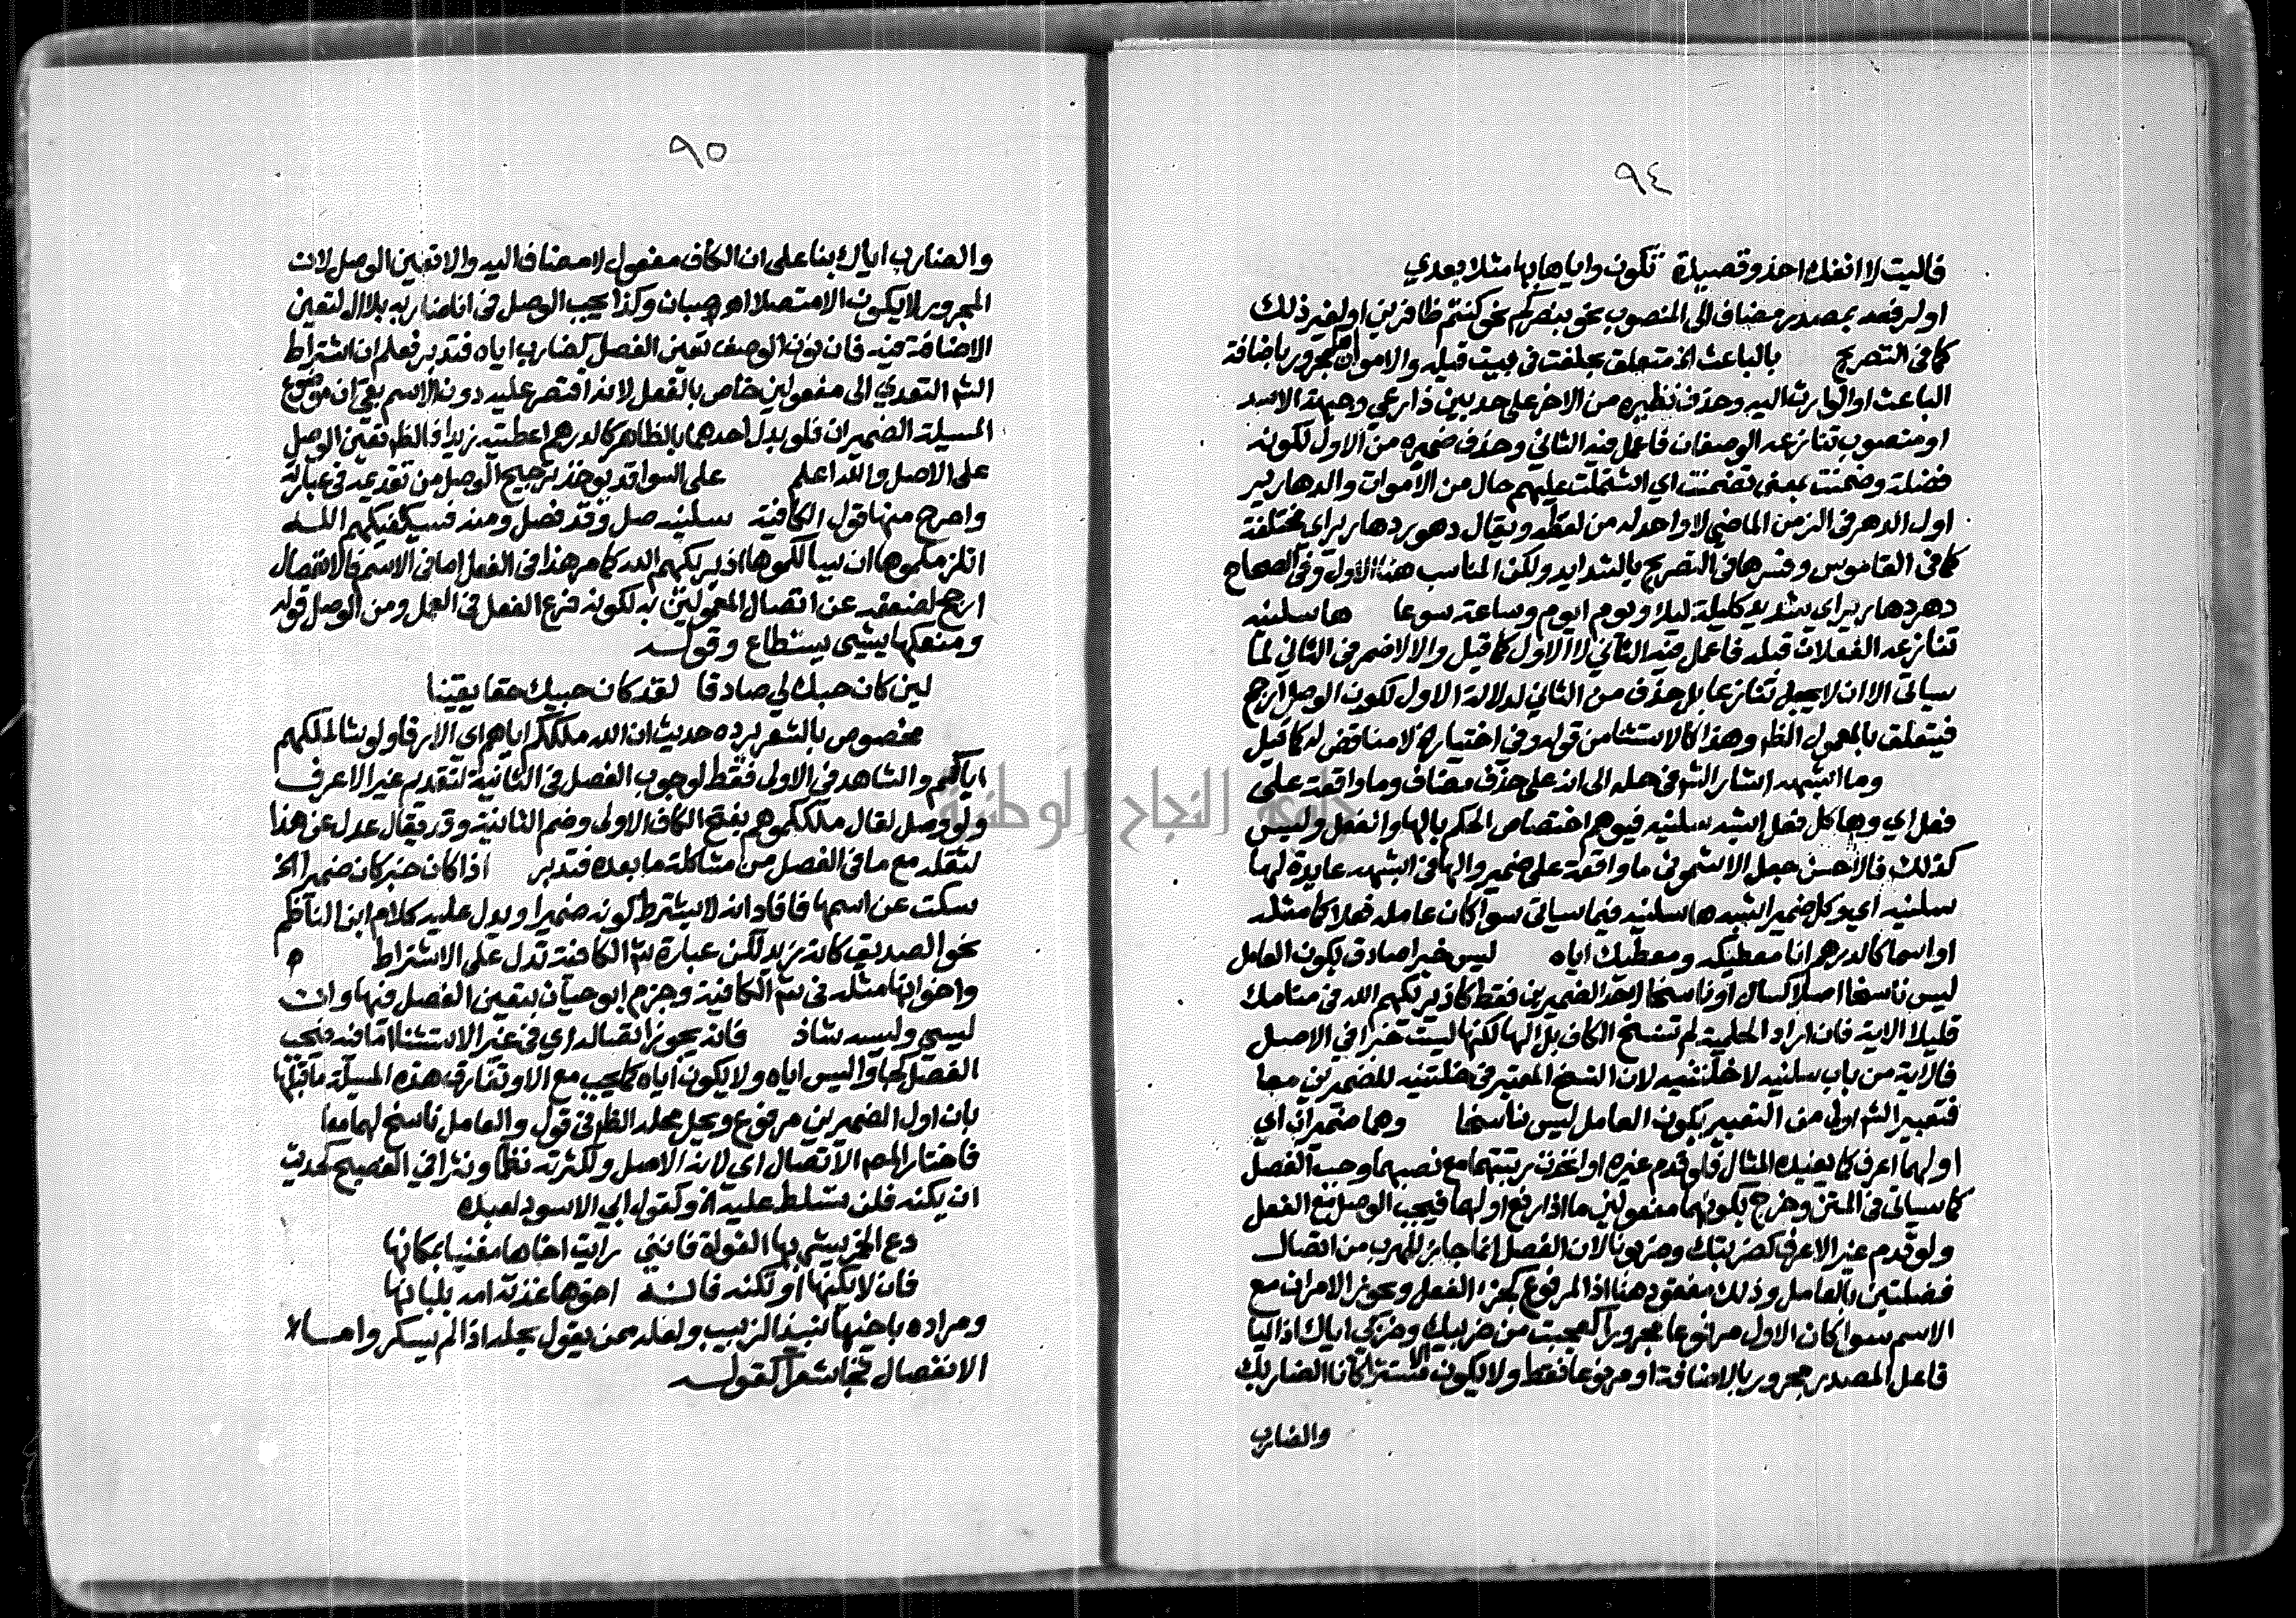 ٩٤
فاليت لا انفك احذو قصيدة تكون واياها بها مثلا بعدي
او لرفعه بمصدر مضاف الى المنصوب نحو بنصركم نحو كنتم ظافرين او لغير ذلك
كما في التصريح بالباعث الخ متعلق بحلفت في بيت قبله والاموات مجرور باضافة
الباعث او الوارث اليه وحذف نظيره من الاخر على حد بين ذراعي وجبهة الاسد
او منصوب تنازعه الوصفان فاعمل فيه الثاني وحذف ضميره من الاول لكونه
فضلة وضمنت بمعنى تضمنت اي اشتملت عليهم حال من الاموات والدهارير
اول الدهر في الزمن الماضي لا واحد له من لفظه ويقال دهور دهارير اي مختلفة
كما في القاموس وفسرها في التصريح بالشدايد ولكن المناسب هنا الاول وفي الصحاح
دهر دهارير اي شديد كليلة ليلا ويوم ايوم وساعة سوعا ها سلنيه
تنازعه الفعلان قبله فاعمل فيه الثاني لا الاول كما قيل والا لاضمر في الثاني لما
سياتي الا ان لا يجعل تنازعا بل حذف من الثاني لدلالة الاول لكون الوصل ارجح
فيتعلق بالمعمول الظ وهذا كالاستثنا من قوله وفي اختيار لا مناقض له كما قيل
وما اشبهه اشار الشم في حله الى انه على حذف مضاف وما واقعة على
فعل اي وها كل فعل اشبه سلنيه فيوهم اختصاص الحكم بالها وانفعل وليس
كذلك فالاحسن جعل الاشموني ما واقعة على ضمير والها في اشبهه عايدة لها
سلنيه اي وكل ضمير اشبه ها سلنيه فيما سياتي سوا كان عامله فعلا كما مثله
او اسما كالدرهم انا معطيكه ومعطيك اياه ليس خبرا صادق بكون العامل
ليس ناسخا اصلا كسال او ناسخا لاحد الضميرين فقط كاذ يريكهم الله في منامك
قليلا الاية فان ارا د الحلمية لم تنسخ الكاف بل الها لكنها ليست خبرا في الاصل
فالاية من باب سلنيه لا خلتنيه لان النسخ المعتبر في خلتنيه للضميرين معا
فتعبير الشم اولى من التعبير بكون العامل ليس ناسخا وهما ضميران اي
اولهما اعرف كما يفيده المثال فلو قدم غيره او اتحدت رتبتهما مع نصبهما وجب الفصل
كما سياتي في المتن وخرج بكونهما مفعولين ما اذا رفع اولهما فيجب الوصل مع الفعل
ولو قدم غير الاعرف كضربتك وضربونا لان الفصل انما جايز للهرب من اتصال
فضلتين بالعامل وذلك مفقود هنا اذ المرفوع كجزء الفعل ويجوز الامران مع
الاسم سوا كان الاول مرفوعا مجرورا كعجبت من ضربيك وضربي اياك اذ اليا
فاعل المصدر مجرور بالاضافة او مرفوعا فقط ولا يكون الا مستترا كانا الضاربك
والضارب
٩٥
والضارب اياك بنا على ان الكاف مفعول لا مضاف اليه والا تعين الوصل لان
المجرور لا يكون الا متصلا اهـ صبان وكذا يجب الوصل في انا ضاربه بلا ال لتعين
الاضافة فيه فان نون الوصف تعين الفصل كضارب اياه فتدبر فعلم ان اشتراط
الشم التعدي الى مفعولين خاص بالفعل لانه اقتصر عليه دون الاسم بقي ان موضوع
المسيلة الضميران فلو بدل احدهما بالظاهر كالدرهم اعطيته زيدا فالظ تعين الوصل
على الاصل والله اعلم على السوا قد يوخذ ترجيح الوصل من تقديمه في عبارته
واصرح منها قول الكافية سلنيه صل وقد فصل ومنه فسيكفيكهم الله
انلزمكموها ان يسالكموها اذ يريكهم الله كما مر هذا في الفعل اما في الاسم فالانفصال
ارجح لضعفه عن اتصال المفعولين به لكونه فرع الفعل في العمل ومن الوصل قوله
ومنعكها بشيى يستطاع وقوله
لين كان حبك لي صادقا لقد كان حبيك حقا يقينا
مخصوص بالشعر يرده حديث ان الله ملككم اياهم اي الارقا ولو شا لملكهم
اياكم والشاهد في الاول فقط لوجوب الفصل في الثانية لتقدم غير الاعرف
ولو وصل لقال ملككموهم بفتح الكاف الاولى وضم الثانية وقد يقال عدل عن هذا
لثقله مع ما في الفصل من مشاكلة ما بعده فتدبر اذا كان خبر كان ضميرا الخ
سكت عن اسمها فافاد انه لا يشترط كونه ضميرا ويدل عليه كلام ابن الناظم
نحو الصديق كانه زيد لكن عبارة شم الكافية تدل على الاشتراط م
واخواتها مثله في شم الكافية وجزم ابو حيان بتعين الفصل فيها وان
ليسي وليسه شاذ فانه يجوز اتصاله اي في غير الاستثنا اما فيه فيجب
الفصل كجاوا ليس اياه ولا يكون اياه كما يجب مع الا وتفارق هذه المسيلة ما قبلها
بان اول الضميرين مرفوع ويحل محله الظ في قول والعامل ناسخ لهما معا
فاختار المص الاتصال اي لانه الاصل ولكثرته نظما ونثرا في الفصيح كحديث
ان يكنه فلن تسلط عليه الخ وكقول ابي الاسود لعبده
دع الخمر يشربها الغواة فانني رايت اخاها مغنيا بمكانها
فان لا يكنها او تكنه فانه اخوها غذته امه بلبانها
ومراده باخيها نبيذ الزبيب ولعله ممن يقول بحله اذا لم يسكر وامـا
الانفصال فجا شعرا كقوله